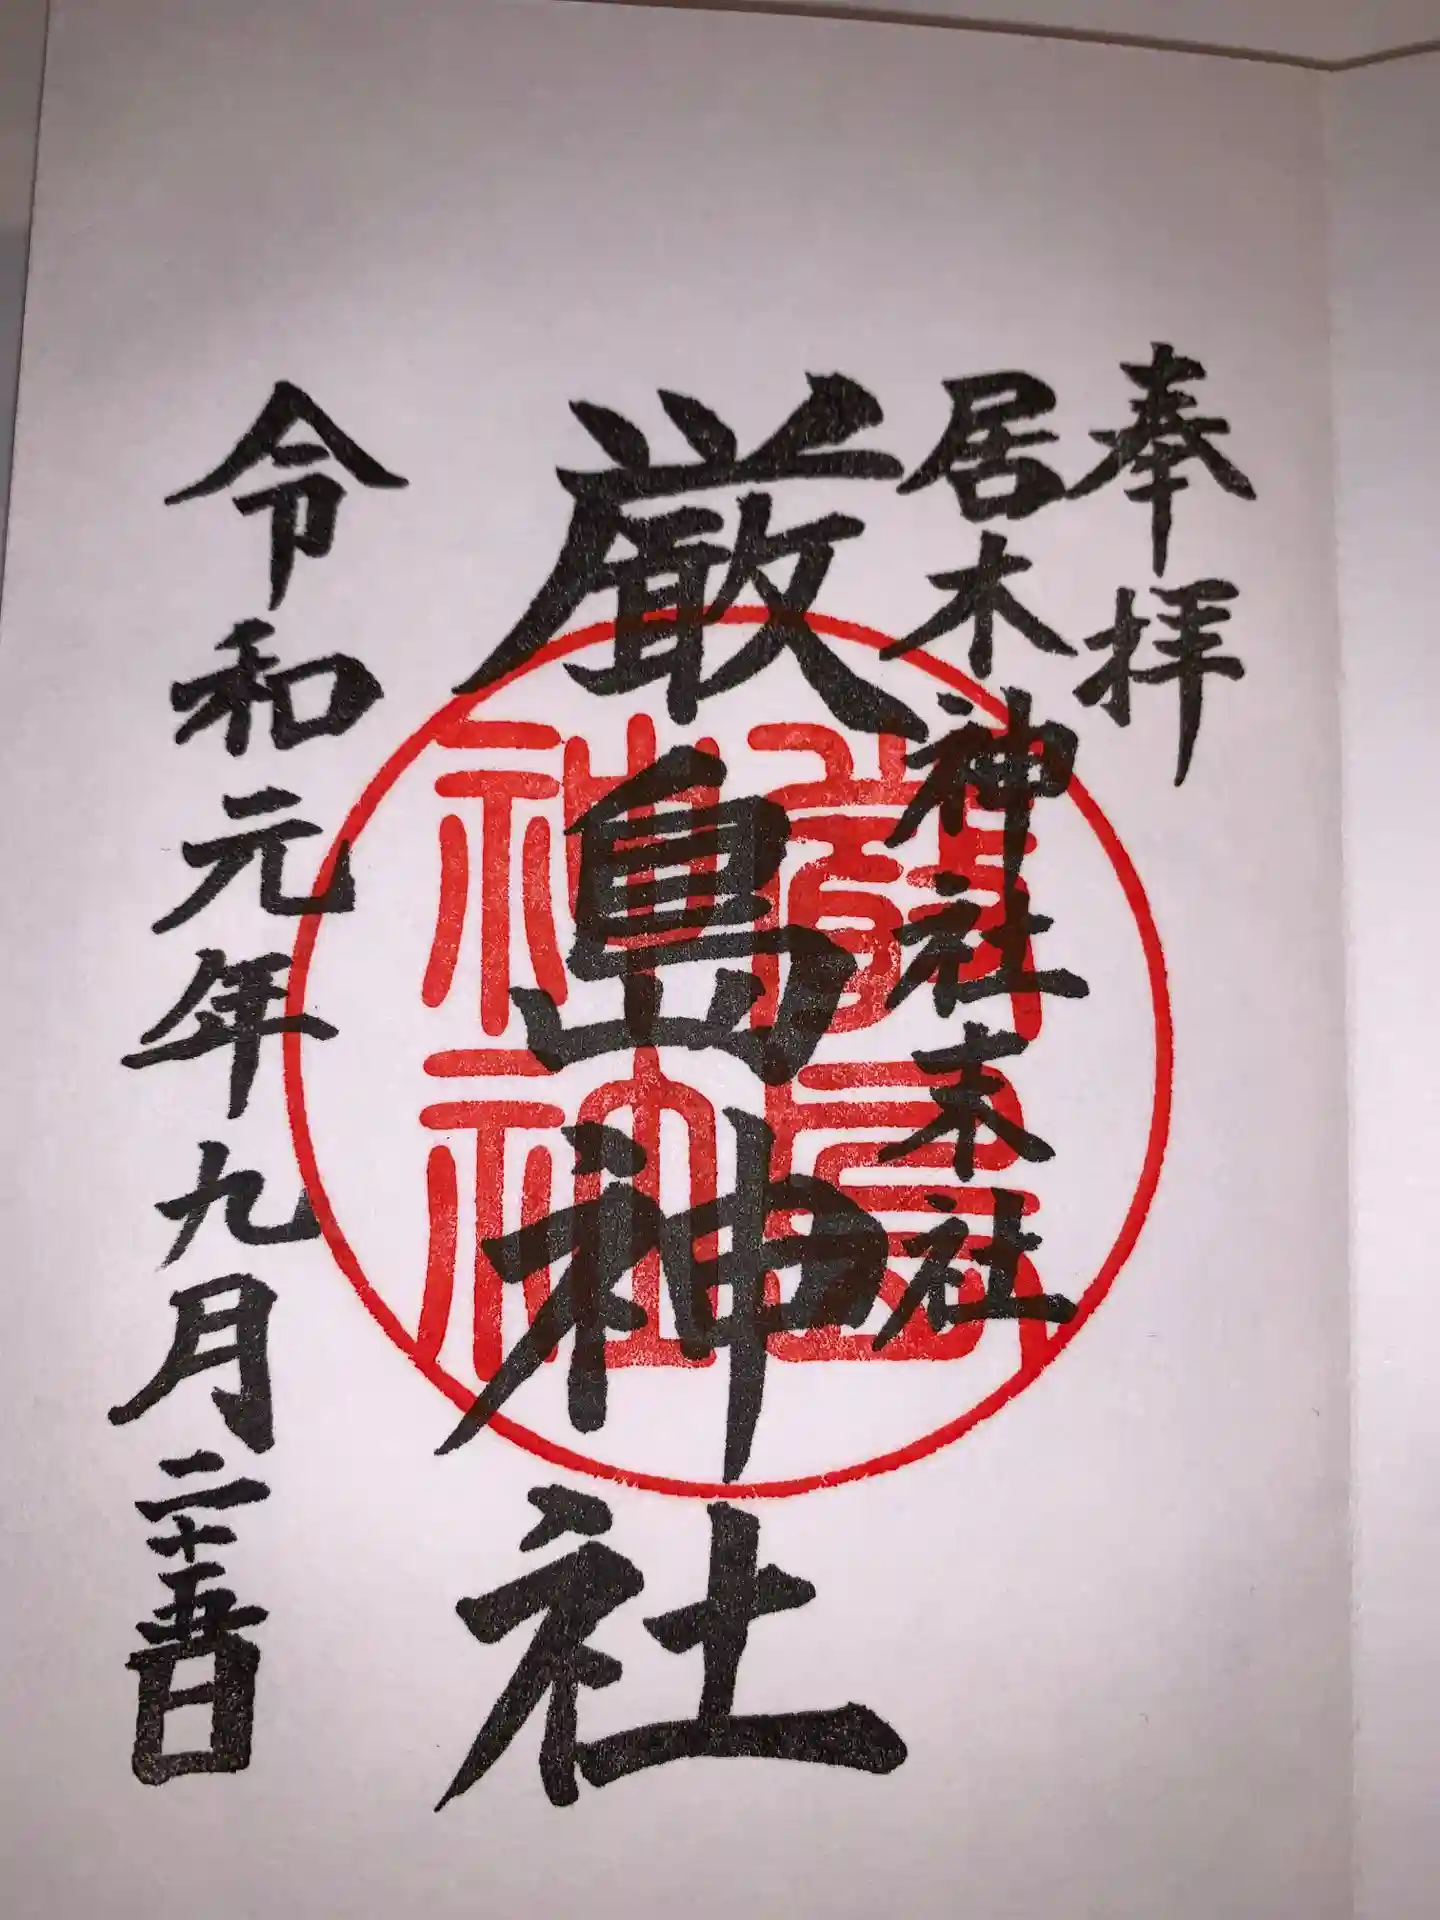 奉拝
居木神社末社
厳島神社
令和元年九月二十五日